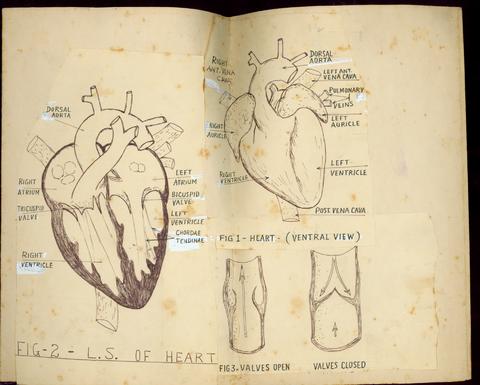 DORSAL
AORTA
RIGHT
ATRIUM
TRICUSPID
VALVE
RIGHT
VENTRICLE
LEFT
ATRIUM
BICUSPID
VALVE
LEFT
VENTRICLE
CHORDAE
TENDINAE
FIG-2 - L.S. OF HEART
RIGHT
ANT. VENA
CAVA
RIGHT
AURICLE
RIGHT
VENTRICLE
DORSAL
AORTA
LEFT ANT.
VENA CAVA
PULMONARY
VEINS
LEFT
AURICLE
LEFT
VENTRICLE
POST VENA CAVA
FIG 1 - HEART - (VENTRAL VIEW)
FIG 3. VALVES OPEN
VALVES CLOSED